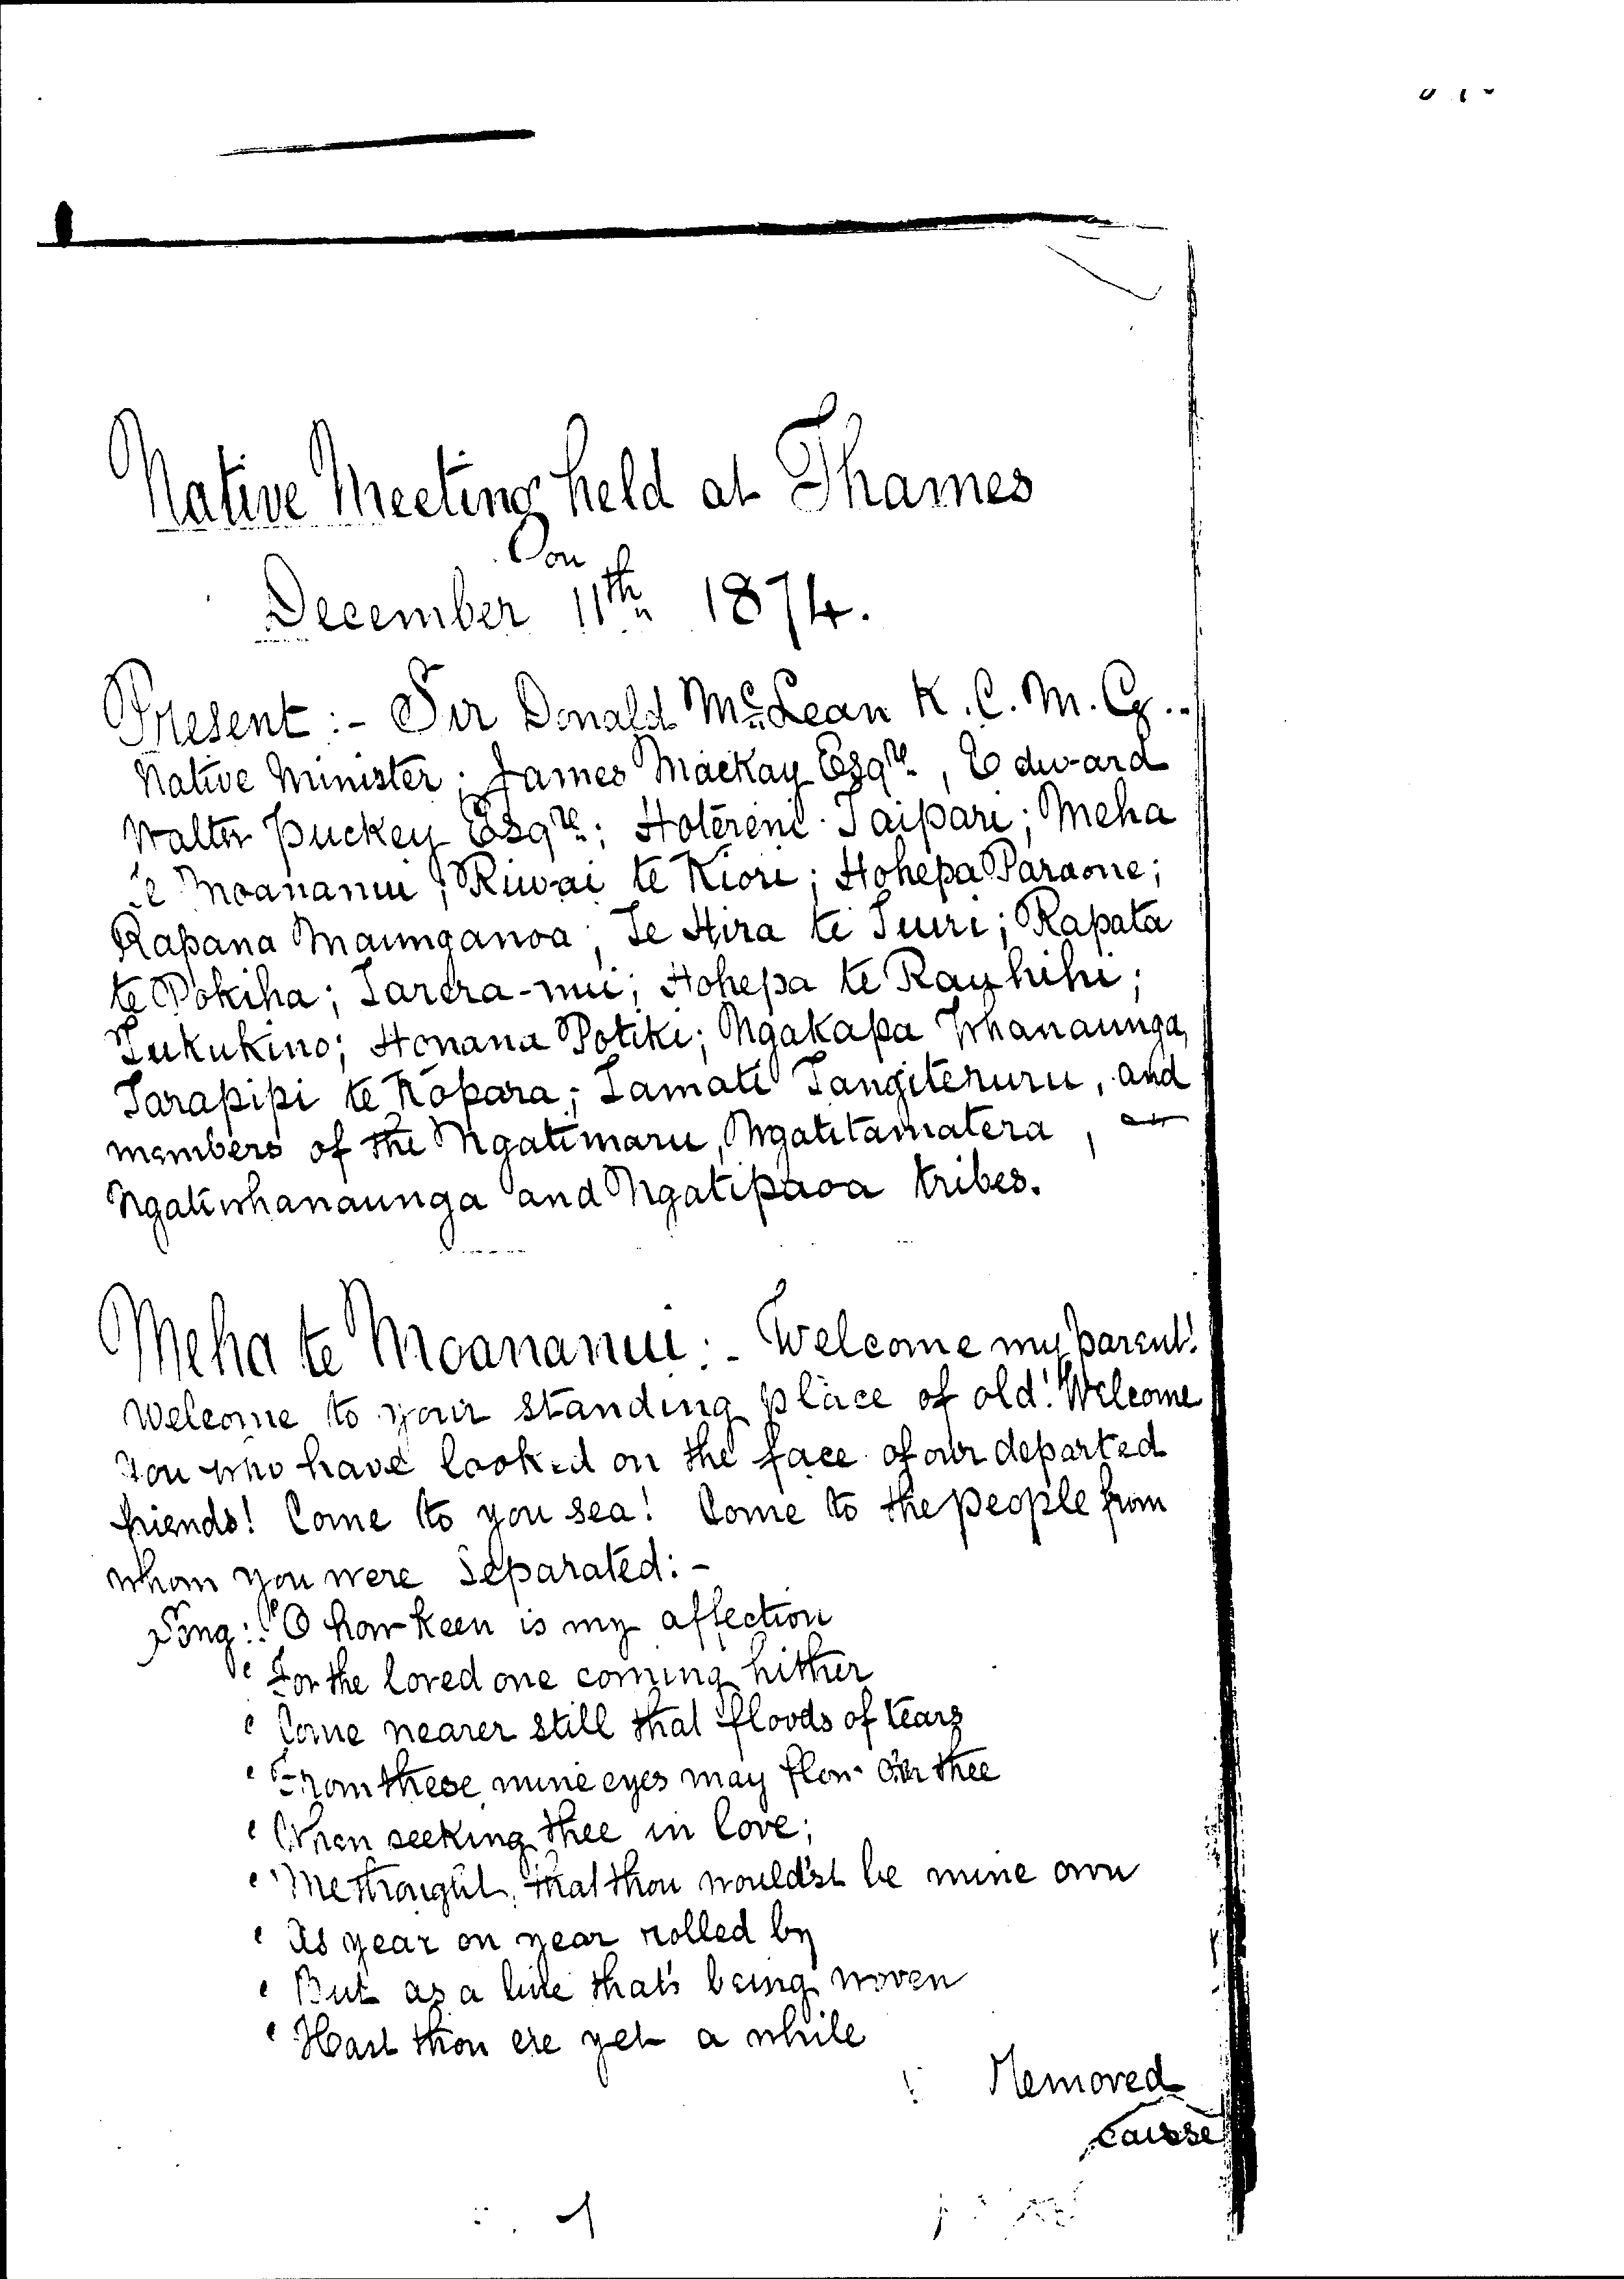 Native Meeting held at Thames
On
December 11th 1874.
Present :- Sir Donald McLean K. C. M. G..
Native Minister; James Mackay Esqre, Edward
Walter Puckey Esqre; Hotereni Taipari; Meha
te Moananui; Riwai te Kiore; Hohepa Paraone;
Rapana Maunganoa; Te Hira te Tuiri; Rapata
te Pokiha; Tarera-nui; Hohepa te Rauhihi;
Tukukino; Honana Potiki; Ngakapa Whanaunga,
Tarapipi te Kopara; Tamati Tangiteruru, and
members of the Ngatimaru, Ngatitamatera,
Ngatiwhanaunga and Ngatipaoa tribes.
Meha te Moananui :- Welcome my parent!
Welcome to your standing place of old! Welcome
you who have looked on the face of our departed
friends! Come to you sea! Come to the people from
whom you were separated: -
Song: "O how keen is my affection
" For the loved one coming hither
" Come nearer still that floods of tears
" From these mine eyes may flow o'er thee
" When seeking thee in love;
" Methought, that thou would'st be mine own
" As year on year rolled by
" But as a line that's being woven
" Hast thou ere yet a while
Removed